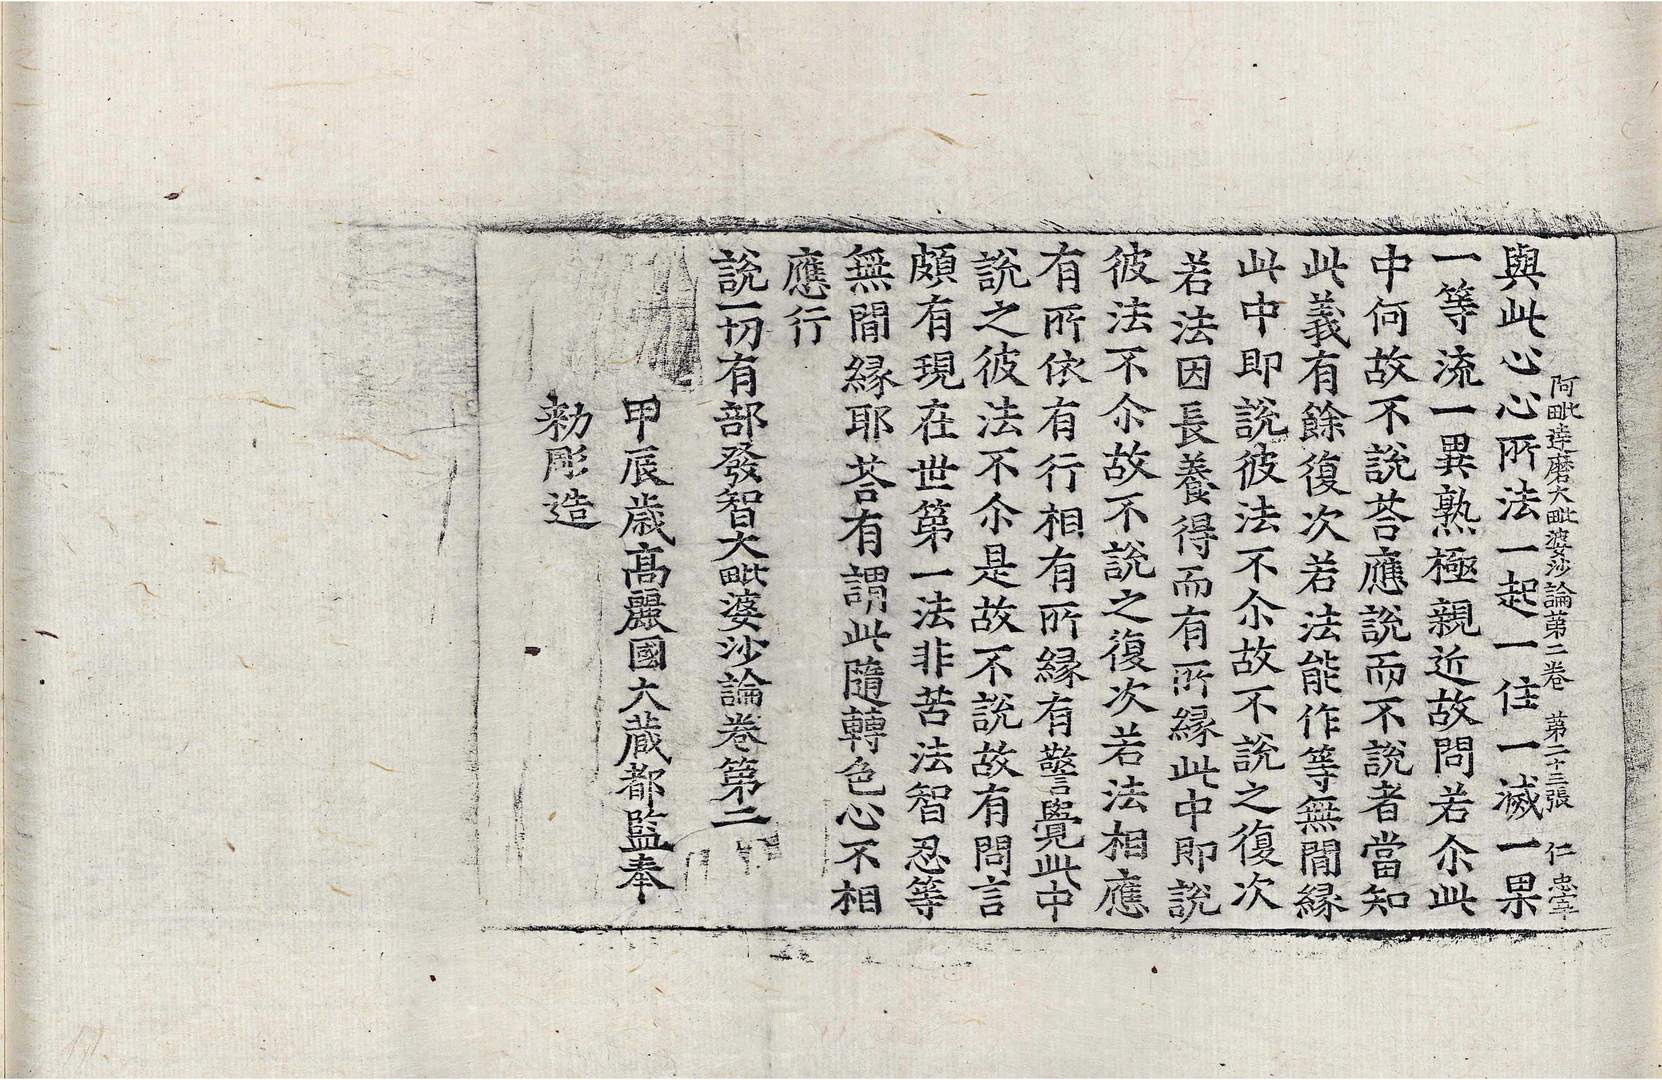 阿毗達磨大毗婆沙論第二卷　第二十三張　仁忠
與此心心所法一起一住一滅一果
一等流一異熟極親近故問若尒此
中何故不說荅應說而不說者當知
此義有餘復次若法能作等無閒緣
此中即說彼法不尒故不說之復次
若法因長養得而有所緣此中即說
彼法不尒故不說之復次若法相應
有所依有行相有所緣有警覺此中
說之彼法不尒是故不說故有問言
頗有現在世第一法非苦法智忍等
無閒緣耶荅有謂此隨轉色心不相
應行
說一切有部發智大毗婆沙論卷第二
甲辰歲高麗國大藏都監奉
勑彫造